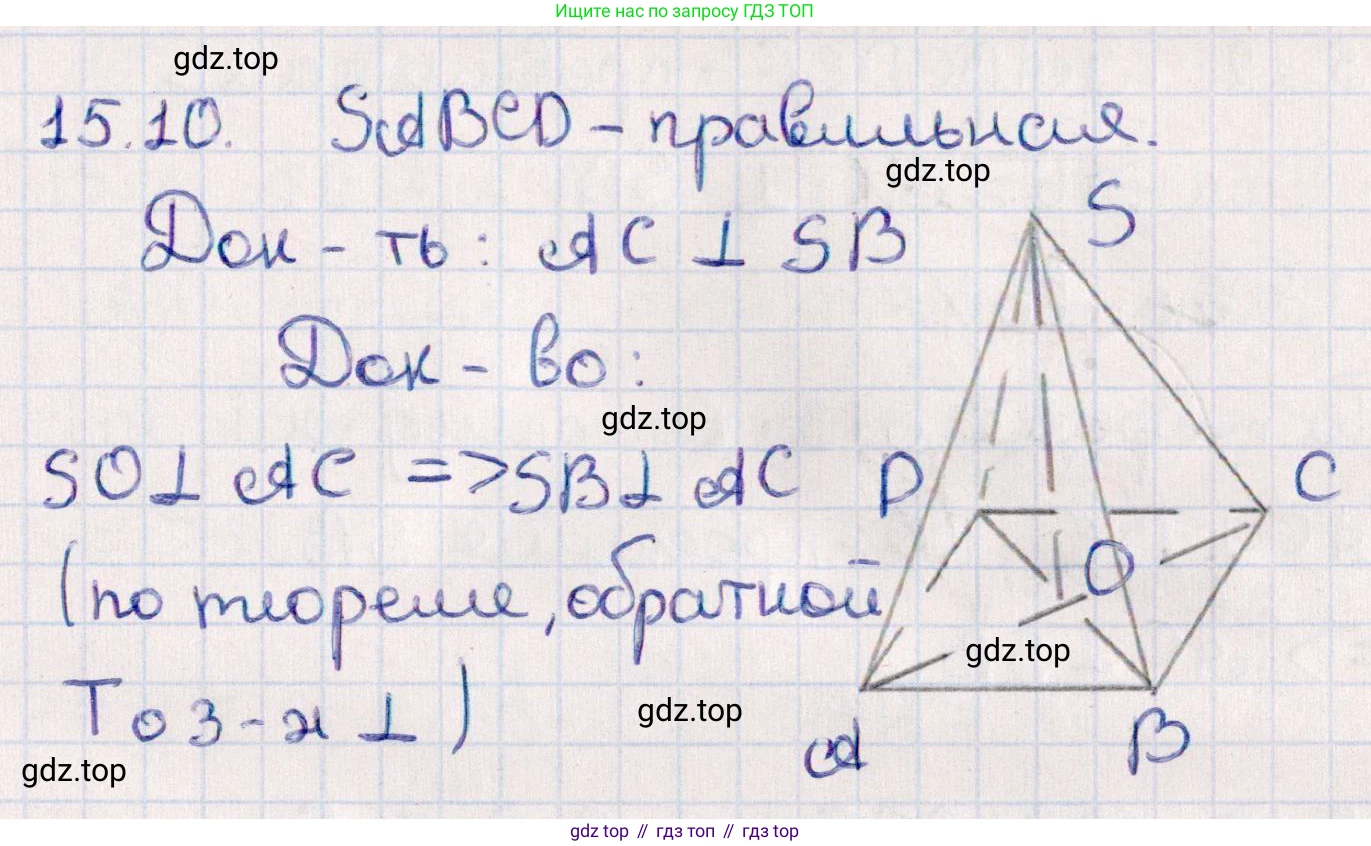 Ищите нас по запросу ГДЗ ТОП
gdz.top
15.10. SABCD - правильная.
gdz.top
Док - ть: AC ⊥ SB
S
Док - во:
gdz.top
SO⊥ AC => SB⊥ AC
D
C
(по теореме, обратной
O
gdz.top
То 3-х ⊥)
gdz.top
A
B
gdz.top
gdz top // гдз топ // gdz top